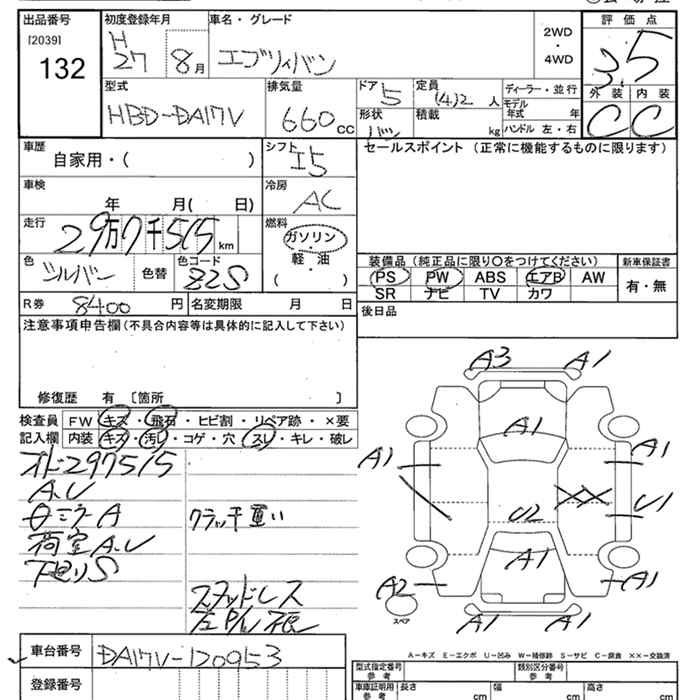 出品番号 初度登録年月 車名・グレード 2WD 評価点
[2039] H
132 27 8月 エブリィバン ・ 4WD 3.5
型式 排気量 ドア 5 定員 (4)2 人 ディーラー・並行 外装 内装
HBD-DA17V 660 CC 形状 バン 積載 kg モデル年式 年 C C
ハンドル 左・右
車歴 シフト セールスポイント (正常に機能するものに限ります)
自家用・( ) I5
車検 冷房
年 月( 日) AC
走行 燃料
2 9万 7千 515 km ガソリン
・
軽・油
( )
色 シルバー 色替 色コード Z2S
装備品(純正品に限り○をつけてください) 新車保証書
PS PW ABS エアB AW 有・無
SR ナビ TV カワ
R券 8400 円 名変期限 月 日 後日品
注意事項申告欄(不具合内容等は具体的に記入して下さい)
修復歴 有 [箇所 ]
検査員 FW キズ・飛石・ヒビ割・リペア跡・×要
記入欄 内装 キズ・汚レ・コゲ・穴・スレ・キレ・破レ
オド297515
A.U
日ミラーA クラッチ重い
荷室A.U
下廻りS
スタッドレス
A3 A1
A1
A1 A1
XX U1
U2
A1
A2 A1
スペア A1 A1
A-キズ E-エクボ U-凹み W-補修跡 S-サビ C-腐食 ××-交換済
車台番号 DA17V-120953
登録番号
型式指定番号 類別区分番号
参考 参考
車庫証明用 長さ cm 幅 cm 高さ cm
参考